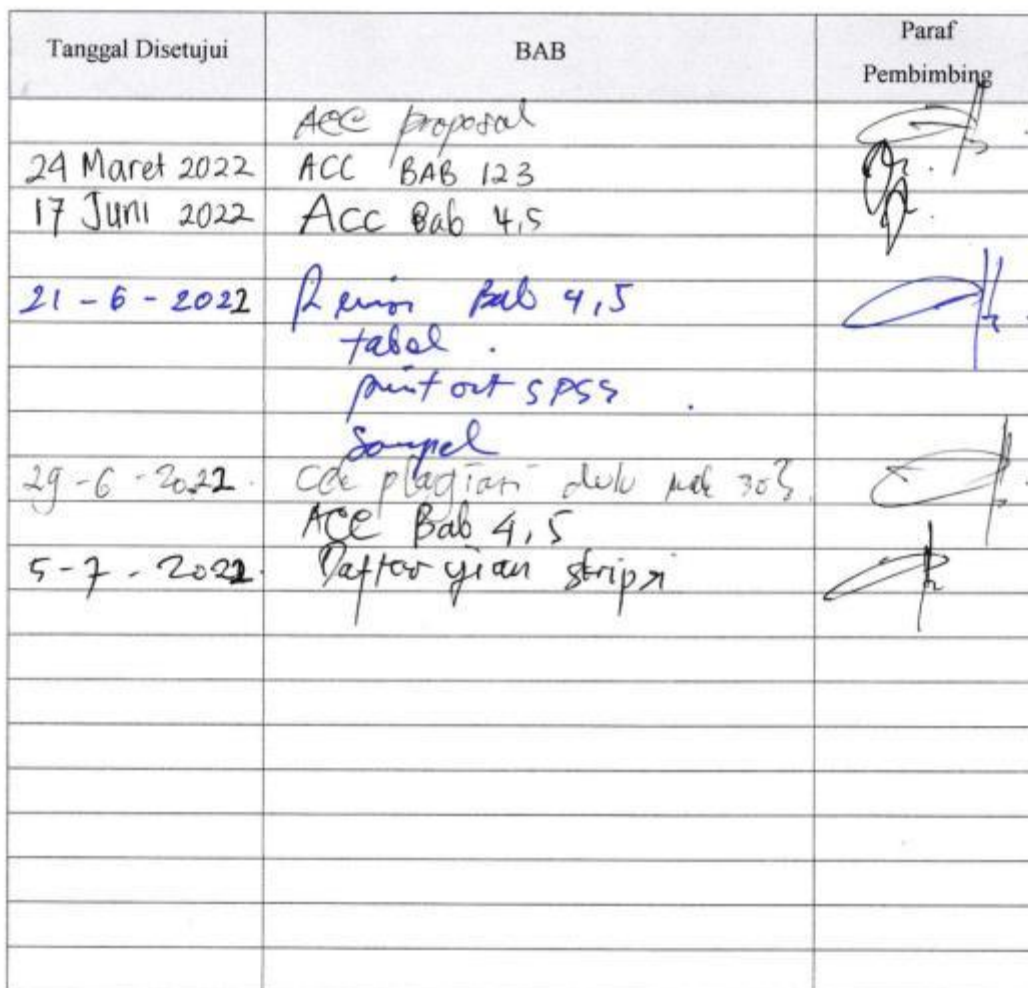 Tanggal Disetujui BAB Paraf Pembimbing
ACC proposal
24 Maret 2022 ACC BAB 123
17 Juni 2022 Acc Bab 4,5
21 - 6 - 2022 Revisi Bab 4,5
tabel .
print out SPSS .
Sampel
29 - 6 - 2022. Cek plagiasi dulu mak 30%
ACC Bab 4,5
5 - 7 - 2022. Daftar ujian skripsi